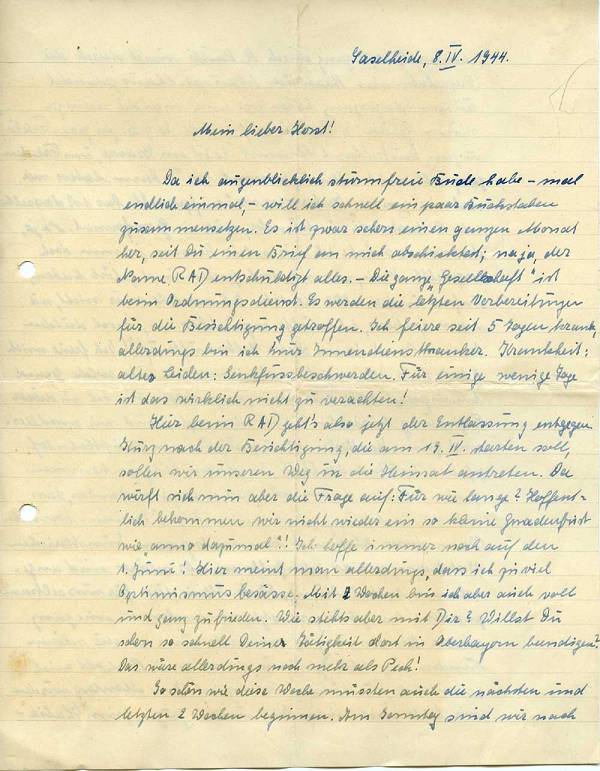 Gaselheide, 8.IV. 1944.
Mein lieber Horst!
Da ich augenblicklich sturmfreie Bude habe – mal
endlich einmal, – will ich schnell ein paar Buchstaben
zusammensetzen. Es ist zwar schon einen ganzen Monat
her, seit Du einen Brief an mich abschicktest; na ja, der
Name RAD entschuldigt alles. – Die ganze „Gesellschaft" ist
beim Ordnungsdienst. Es werden die letzten Vorbereitungen
für die Besichtigung getroffen. Ich feiere seit 5 Tagen krank,
allerdings bin ich nur Innendienstkranker. Krankheit:
altes Leiden: Senkfussbeschwerden. Für einige wenige Tage
ist das wirklich nicht zu verachten!
Hier beim RAD geht's also jetzt der Entlassung entgegen
Kurz nach der Besichtigung, die am 19. IV. starten soll,
sollen wir unseren Weg in die Heimat antreten. Da
wirft sich nun aber die Frage auf: Für wie lange? Hoffent-
lich bekommen wir nicht wieder ein so keine Gnadenfrist
wie „anno dazumal"!! Ich hoffe immer noch auf den
1. Juni! Hier meint man allerdings, dass ich zu viel
Optimismus besässe. Mit 2 Wochen bin ich aber auch voll
und ganz zufrieden. Wie stehts aber mit Dir? Willst Du
schon so schnell Deine Tätigkeit dort in Oberbayern beendigen?
Das wäre allerdings noch mehr als Pech!
So schön wie diese Woche müssten auch die nächsten und
letzten 2 Wochen beginnen. Am Sonntag sind wir nach